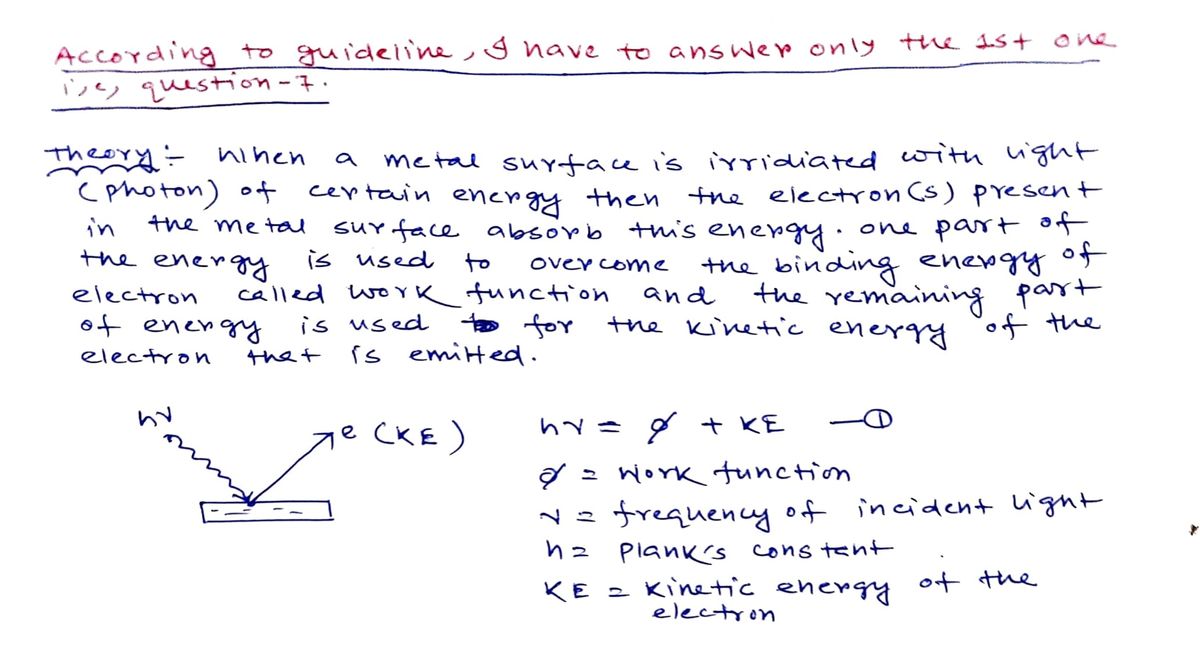 According to guideline, I have to answer only the 1st one
i,e, question-7.
Theory:- When a metal surface is irridiated with light
(photon) of certain energy then the electron(s) present
in the metal surface absorb this energy. one part of
the energy is used to overcome the binding energy of
electron called work function and the remaining part
of energy is used for the kinetic energy of the
electron that is emitted.
hν
e (KE)
hν = φ + KE —①
φ = Work function
ν = frequency of incident light
h = Plank's constant
KE = Kinetic energy of the
electron